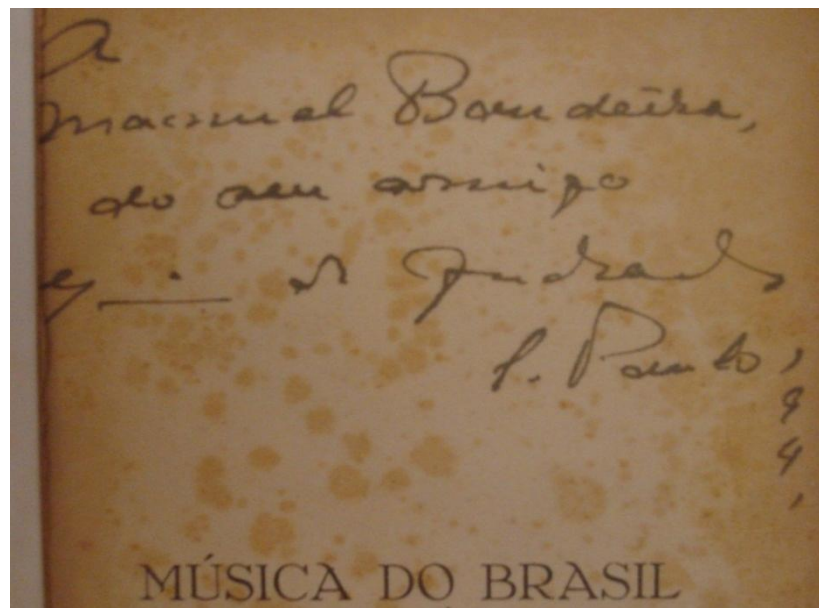 A
Manuel Bandeira,
do seu amigo
de Andrade
S. Paulo,
1941
MÚSICA DO BRASIL